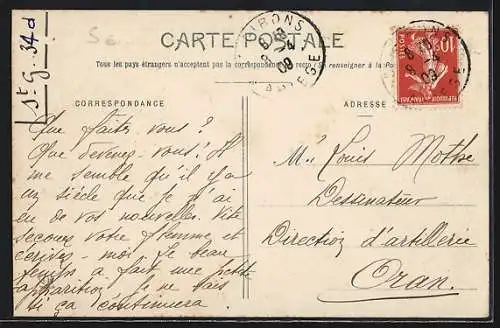 St G. 34d
CARTE POSTALE
Tous les pays étrangers n'acceptent pas la correspondance au recto (Se renseigner à la Poste)
CORRESPONDANCE
ADRESSE
10
POSTES
09
Que faites vous ?
Que devenez-vous! Il
me semble qu'il y a
un siècle que je n'ai
eu de vos nouvelles. Vite
secouez votre flemme et
écrivez-moi. Le beau
temps a fait une petite
apparition je ne sais
si ça continuera.
Mr Louis Mothe
Dessinateur
Direction d'artillerie
Oran.